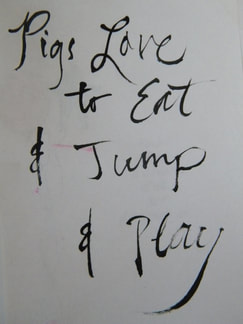 Pigs Love
to Eat
& Jump
& Play